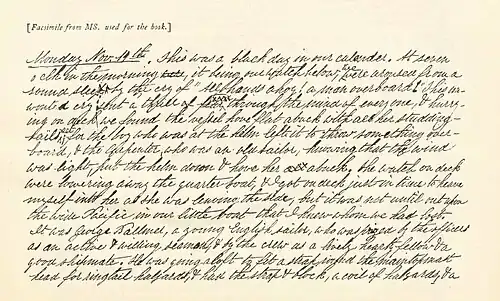 [Facsimile from MS. used for the book.]
Monday Nov. 19th. This was a black day in our calender. At seven
o clk in the morning, it being our watch below, we were aroused from a
sound sleep by the cry of "All hands ahoy! a man overboard!" This un-
wonted cry sent a thrill of through the hearts of everyone, & hurry-
ing on deck we found the vessel hove flat aback with all her studding-
sails set for the boy who was at the helm left it to throw something over-
board, & the carpenter, who was an old sailor, knowing that the wind
was light, put the helm down & hove her aback. The watch on deck
were lowering away the quarter boat, & I got on deck just in time to heave
myself into her as she was leaving the side, but it was not until out upon
the wide Pacific in our little boat that I knew whom we had lost.
It was George Ballmer, a young English sailor, who was prized by the officers
as an active & willing seaman, & by the crew as a lively, hearty fellow & a
good shipmate. He was going aloft to fit a strap round the main top mast
head for ringtail halyards, & had the strap & block, a coil of halyards, & a